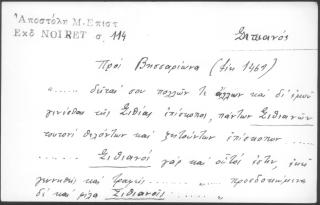 Ἀποστόλη Μ. Ἐπιστ
Εκδ NOIRET σ. 114
Σιτιανός
Πρός Βησσαρίωνα (fin 1461)
"..... δεῖταί σου πολλῶν τε ἄλλων καὶ δι' ἐμοῦ
γενέσθαι τῆς Σιθίας ἐπίσκοπος, πάντων Σιθιανῶν
τουτονί θελόντων καὶ ζητούντων ἐπίσκοπον ......
........ Σιθιανός γάρ καὶ οὗτός ἐστιν, ἐκεῖ
γεννηθείς καὶ τραφείς ....... " ........ προσδοκώμενα
δὲ καὶ ῥίζα Σιθιανοῖς ........"